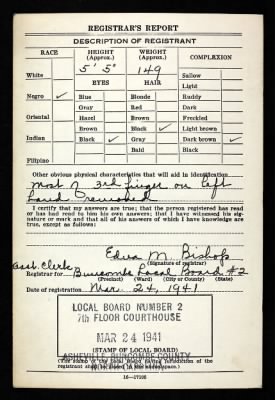 REGISTRAR'S REPORT
DESCRIPTION OF REGISTRANT
RACE
HEIGHT (Approx.)
WEIGHT (Approx.)
COMPLEXION
5' 5"
149
White
EYES
HAIR
Sallow
Light
Negro ✓
Blue
Blonde
Ruddy
Gray
Red
Dark
Oriental
Hazel
Brown
Freckled
Brown
Black ✓
Light brown
Indian
Black ✓
Gray
Dark brown ✓
Bald
Black
Filipino
Other obvious physical characteristics that will aid in identification
Most of 3rd finger on left
hand removed
I certify that my answers are true; that the person registered has read
or has had read to him his own answers; that I have witnessed his sig-
nature or mark and that all of his answers of which I have knowledge are
true, except as follows:
Edna M. Bishop
(Signature of registrar)
Asst. Clerk
Registrar for Buncombe Local Board #2
(Precinct) (Ward) (City or County) (State)
Date of registration Mar. 24, 1941
LOCAL BOARD NUMBER 2
7th FLOOR COURTHOUSE
MAR 24 1941
(STAMP OF LOCAL BOARD)
ASHEVILLE, BUNCOMBE COUNTY
(The stamp of the Local Board having jurisdiction of the
registrant shall be placed in the above space.)
16—17105